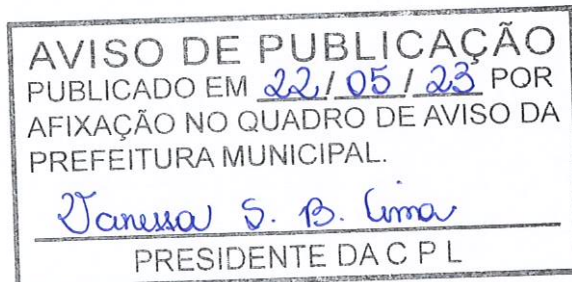 AVISO DE PUBLICAÇÃO
PUBLICADO EM 22/05/23 POR
AFIXAÇÃO NO QUADRO DE AVISO DA
PREFEITURA MUNICIPAL.
Vanessa S. B. Lima
PRESIDENTE DA C P L